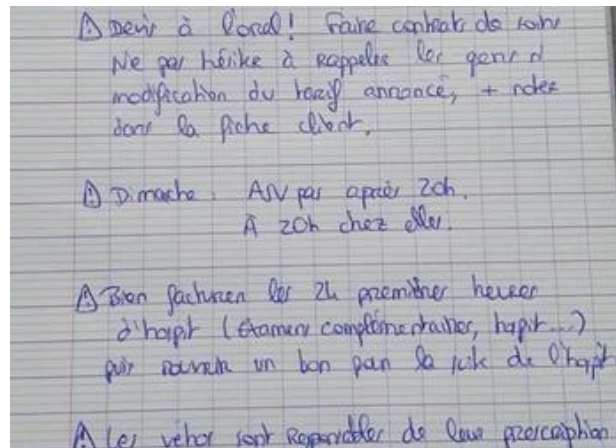 ⚠ Devis à l'oral ! Faire contrats de soins
Ne pas hésiter à rappeler les gens si
modification du tarif annoncé, + noter
dans la fiche client.
⚠ Dimanche : ASV pas après 20h.
À 20h chez elles.
⚠ Bien facturer les 24 premières heures
d'hospit (examens complémentaires, hospit...)
puis rouvrir un bon pour la suite de l'hospit
⚠ Les vétos sont responsables de leur prescription